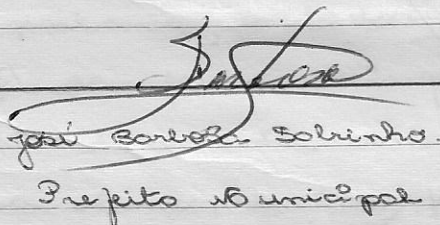 José Barboza Sobrinho.
Prefeito Municipal